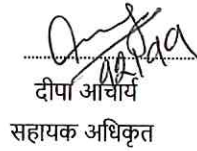 दीपा आचार्य
सहायक अधिकृत